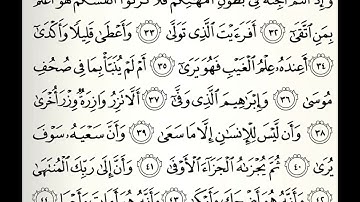 وَإِذْ أَنتُمْ أَجِنَّةٌ فِى بُطُونِ أُمَّهَٰتِكُمْ فَلَا تُزَكُّوٓا۟ أَنفُسَكُمْ هُوَ أَعْلَمُ
بِمَنِ ٱتَّقَىٰٓ ٣٢ أَفَرَءَيْتَ ٱلَّذِى تَوَلَّىٰ ٣٣ وَأَعْطَىٰ قَلِيلًا وَأَكْدَىٰٓ
٣٤ أَعِندَهُۥ عِلْمُ ٱلْغَيْبِ فَهُوَ يَرَىٰٓ ٣٥ أَمْ لَمْ يُنَبَّأْ بِمَا فِى صُحُفِ
مُوسَىٰ ٣٦ وَإِبْرَٰهِيمَ ٱلَّذِى وَفَّىٰٓ ٣٧ أَلَّا تَزِرُ وَازِرَةٌ وِزْرَ أُخْرَىٰ
٣٨ وَأَن لَّيْسَ لِلْإِنسَٰنِ إِلَّا مَا سَعَىٰ ٣٩ وَأَنَّ سَعْيَهُۥ سَوْفَ
يُرَىٰ ٤٠ ثُمَّ يُجْزَىٰهُ ٱلْجَزَآءَ ٱلْأَوْفَىٰ ٤١ وَأَنَّ إِلَىٰ رَبِّكَ ٱلْمُنتَهَىٰ
٤٢ وَأَنَّهُۥ هُوَ أَضْحَكَ وَأَبْكَىٰ ٤٣ وَأَنَّهُۥ هُوَ أَمَاتَ وَأَحْيَا ٤٤